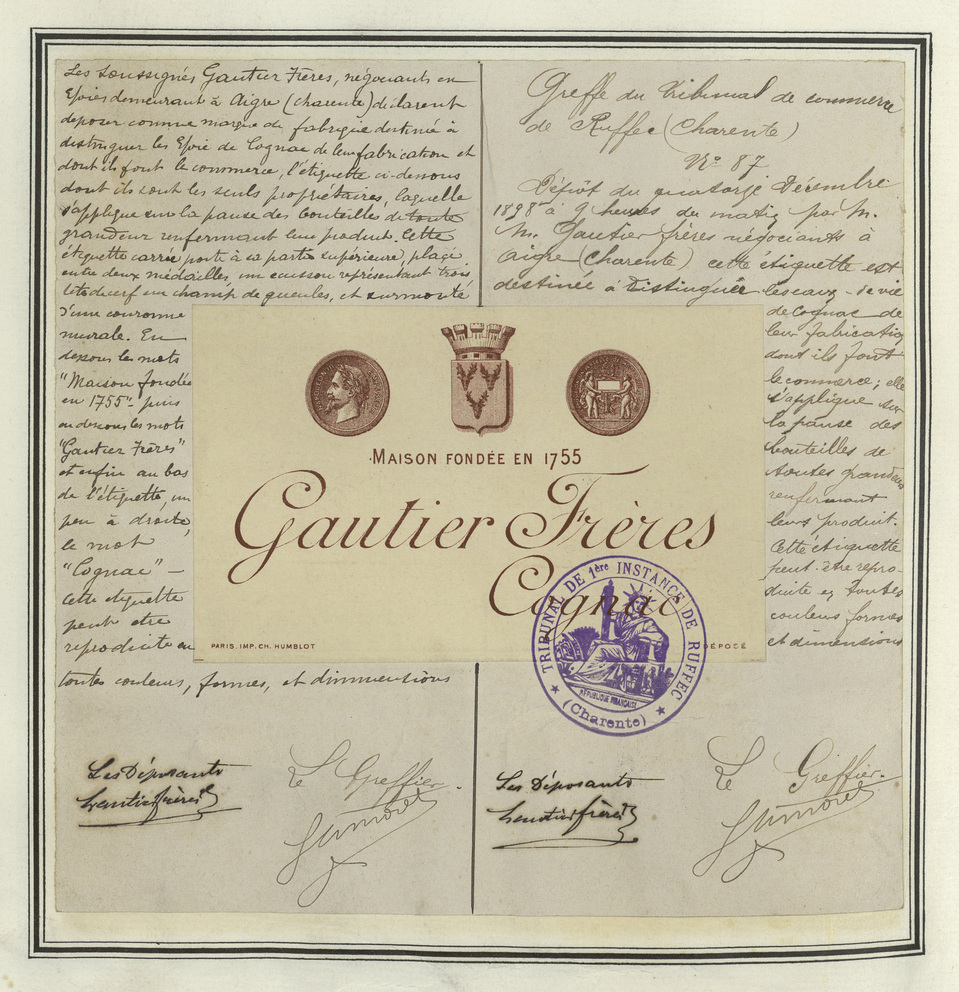 Les Soussignés Gautier Frères, négociants en
Epoies demeurant à Aigre (charente) déclarent
déposer comme marque de fabrique destinée à
distinguer les Epoie de Cognac de leur fabrication et
dont ils font le commerce, l'étiquette ci-dessous
dont ils sont les seuls propriétaires, laquelle
s'applique sur la panse des bouteilles de toute
grandeur renfermant leur produit. Cette
étiquette carrée porte à sa partie supérieure, placé
entre deux médailles, un écusson représentant trois
en champ de gueules, et surmonté
d'une couronne
murale. En
dessous les mots
"Maison fondée
en 1755" puis
au dessous les mots
"Gautier Frères"
et enfin au bas
de l'étiquette, un
peu à droite,
le mot
"Cognac" –
Cette étiquette
peut être
reproduite en
toutes couleurs, formes, et dimmensions
Les Déposants
Gautier frères
Le Greffier.
Greffe du Tribunal de commerce
de Ruffec (Charente)
No 87
Dépôt du quatorze Décembre
1898 à 9 heures du matin par M.
M. Gautier frères négociants à
Aigre (Charente) cette étiquette est
destinée à distinguer les eaux-de-vie
de Cognac de
leur fabrication
dont ils font
le commerce; elle
s'applique sur
la panse des
bouteilles de
toutes grandeurs
renfermant
leurs produit.
Cette étiquette
peut être repro-
duite en toutes
couleurs formes
et dimensions
Les Déposants
Gautier frères
Le Greffier.
MAISON FONDÉE EN 1755
Gautier Frères
Cognac
PARIS. IMP. CH. HUMBLOT
DÉPOSÉ
TRIBUNAL DE 1ère INSTANCE DE RUFFEC
RÉPUBLIQUE FRANÇAISE
(Charente)